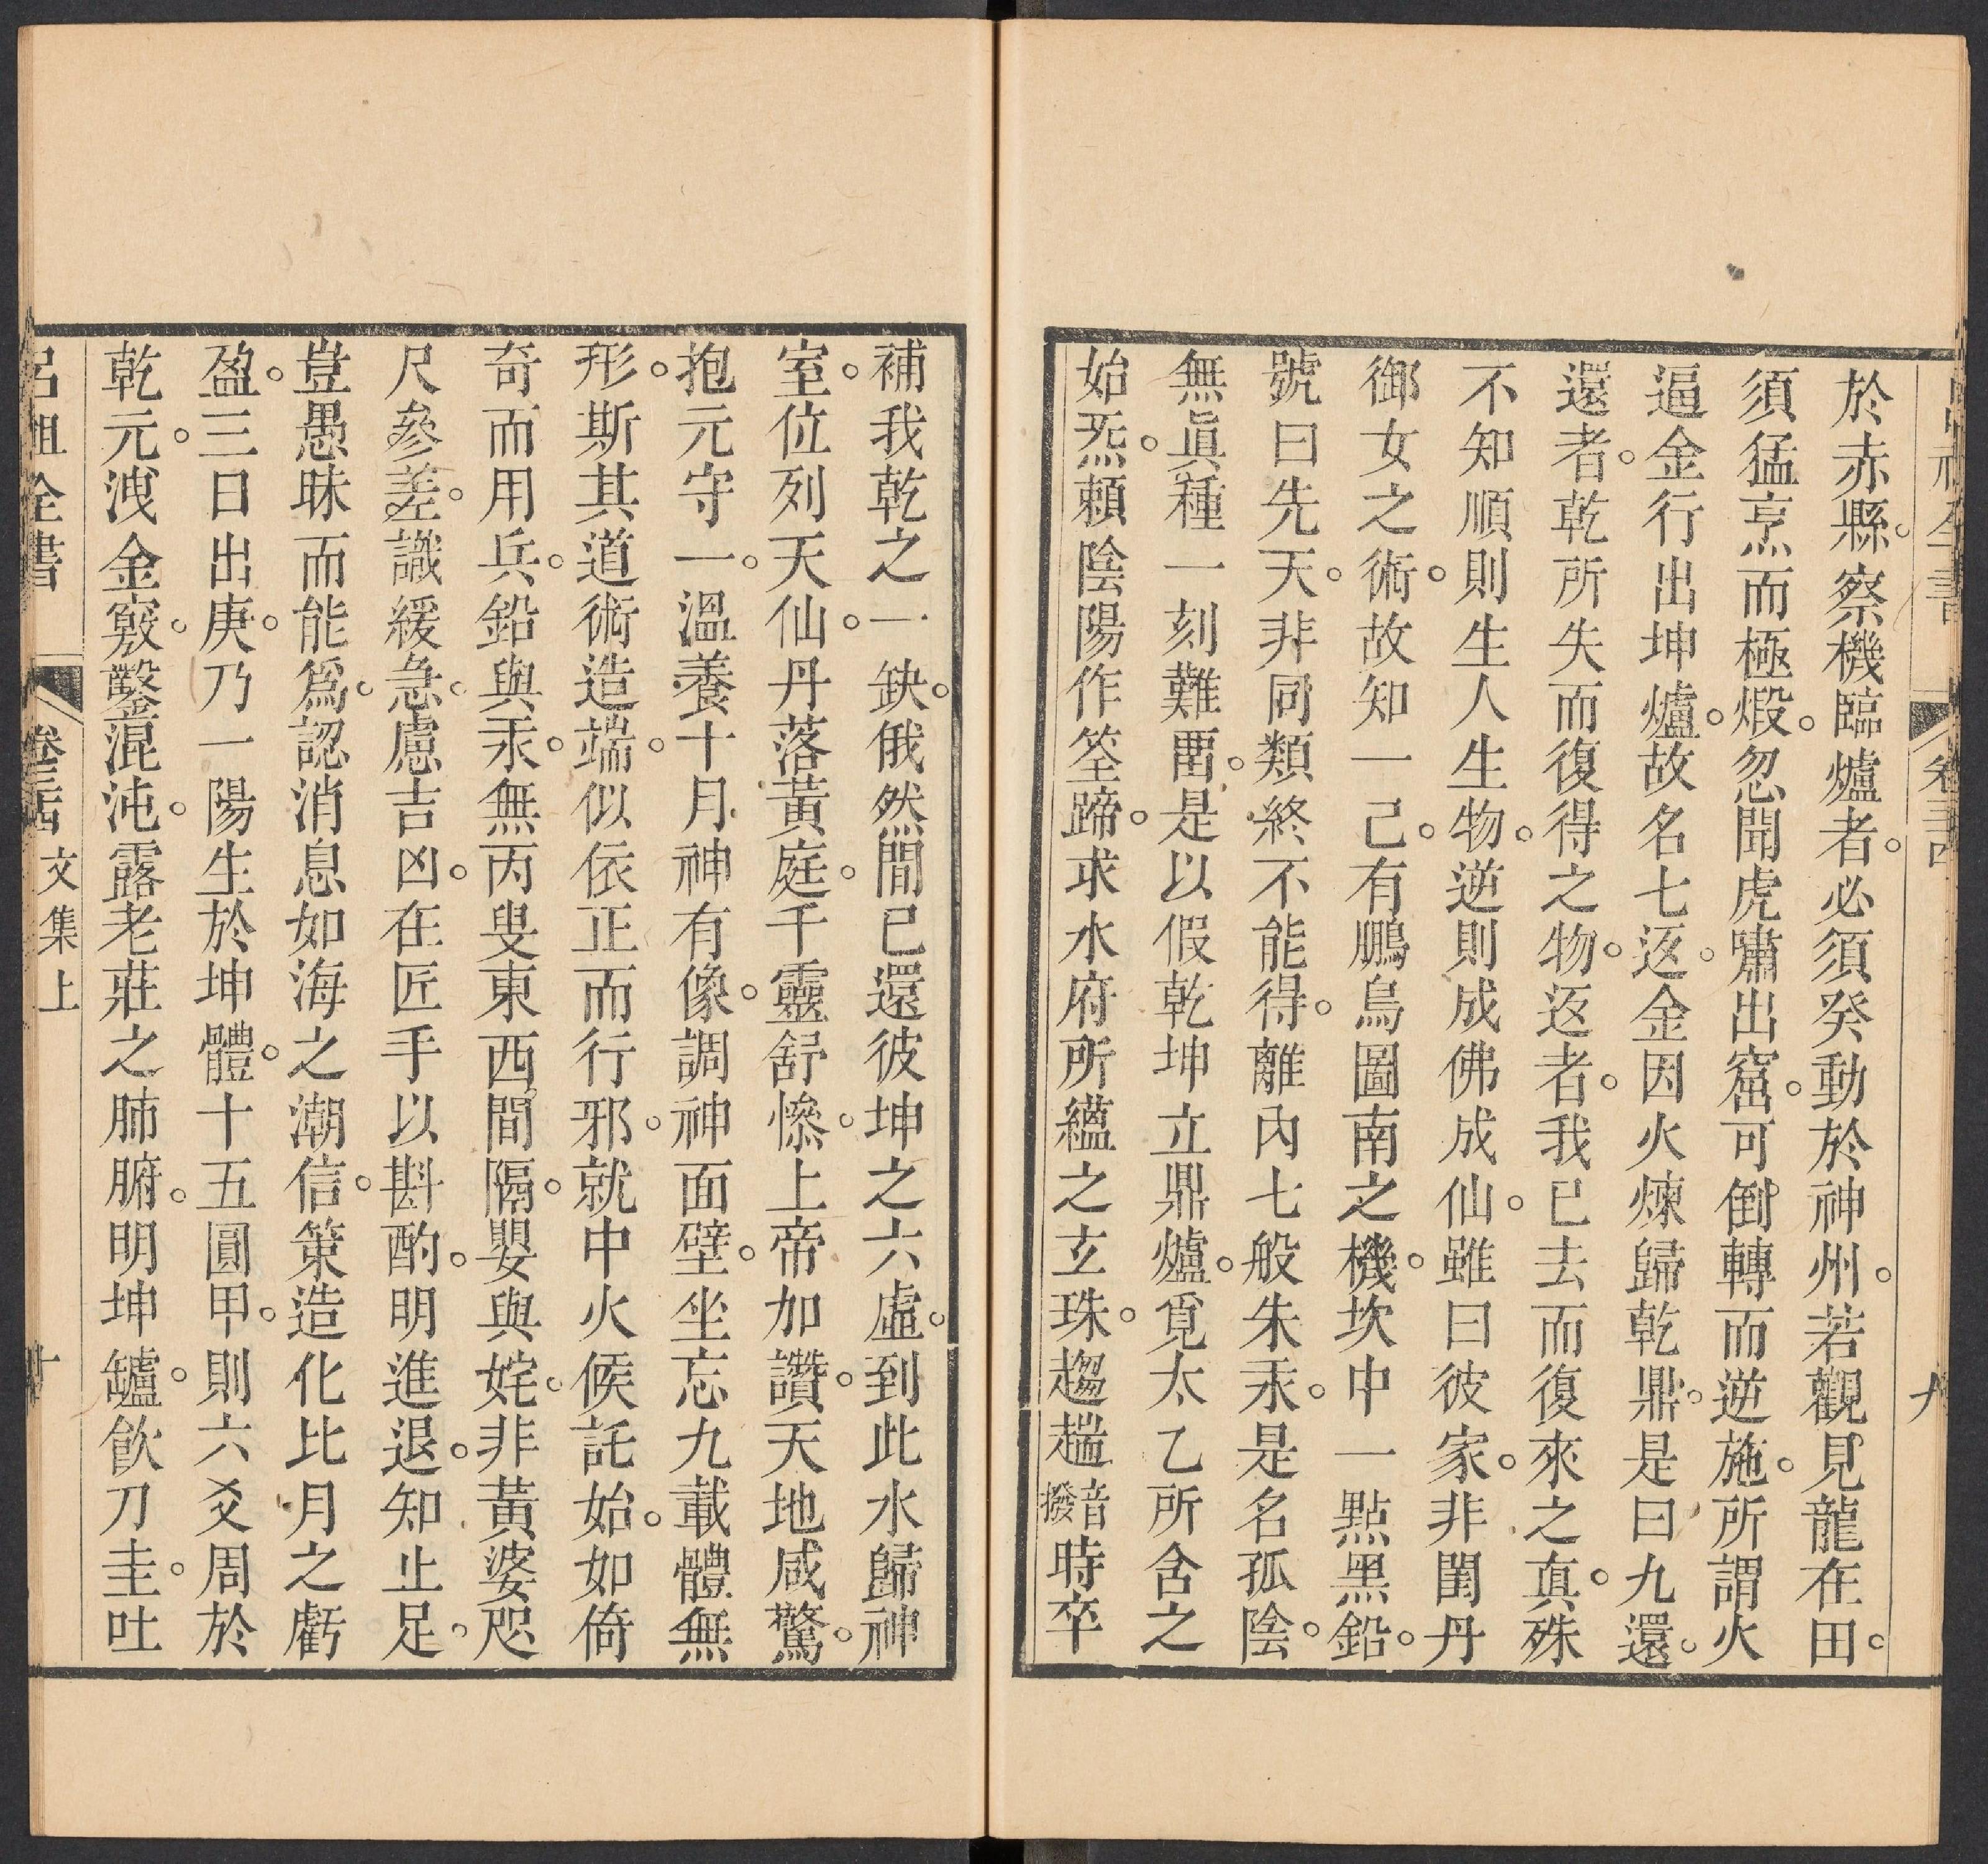 於赤縣。察機臨爐者。必須癸動於神州。若觀見龍在田。
須猛烹而極煅。忽聞虎嘯出窟。可倒轉而逆施。所謂火
逼金行出坤爐。故名七返。金因火煉歸乾鼎。是曰九還。
還者。乾所失而復得之物。返者。我已去而復來之真。殊
不知順則生人生物。逆則成佛成仙。雖曰彼家。非閨丹
御女之術。故知一己。有鵬鳥圖南之機。坎中一點黑鉛。
號曰先天。非同類終不能得。離內七般朱汞。是名孤陰。
無眞種一刻難畱。是以假乾坤立鼎爐。覓太乙所含之
始炁。賴陰陽作筌蹄。求水府所蘊之玄珠。趨趲音撥時卒
補我乾之一缺。俄然間已還彼坤之六虛。到此水歸神
室。位列天仙。丹落黃庭。千靈舒慘。上帝加讚。天地咸驚。
抱元守一。溫養十月。神有像。調神面壁。坐忘九載體無
形。斯其道術造端。似依正而行邪。就中火候託始。如倚
奇而用兵。鉛與汞。無丙叟東西間隔。嬰與姹。非黃婆咫
尺參差。識緩急。慮吉凶。在匠手以斟酌。明進退。知止足。
豈愚昧而能爲。認消息如海之潮信。策造化比月之虧
盈。三日出庚。乃一陽生於坤體。十五圓甲。則六爻周於
乾元。洩金竅。鑿混沌。露老莊之肺腑。明坤罏。飲刀圭。吐
呂祖全書 卷三十四 文集上 十